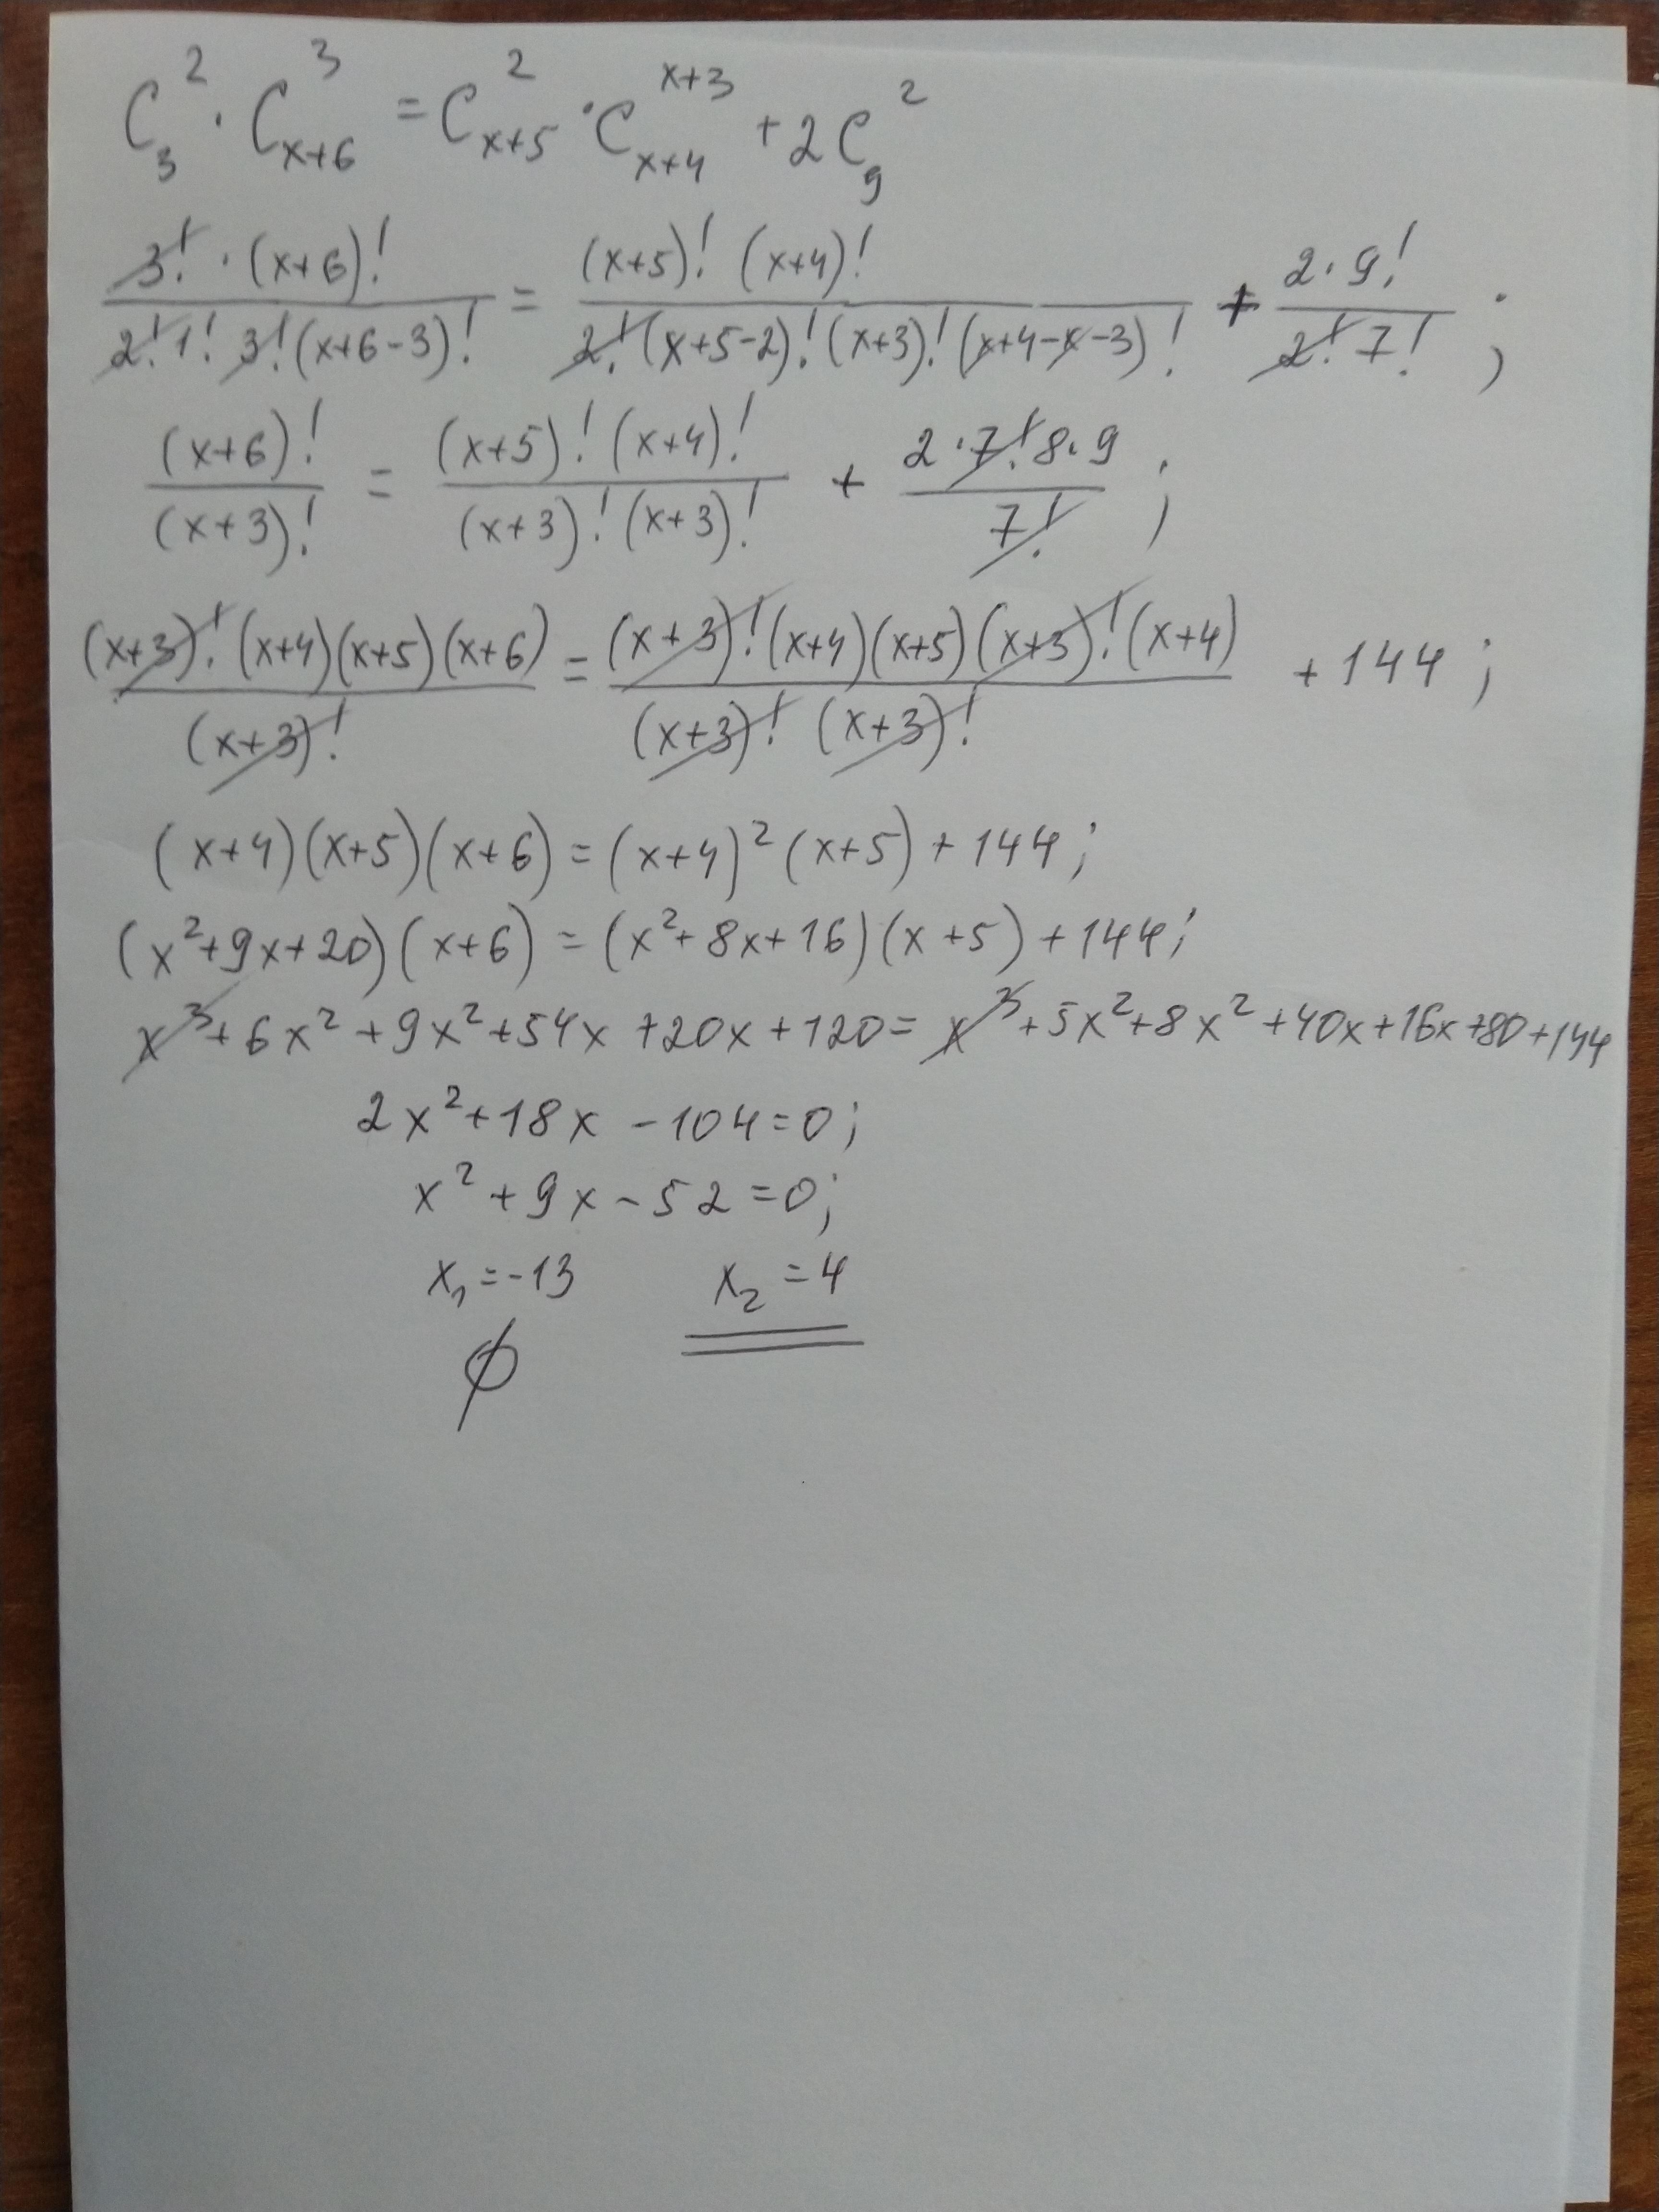 C₃² · C³ₓ₊₆ = C²ₓ₊₅ · Cₓ₊₄ˣ⁺³ + 2C₉²
3! · (x+6)! / 2! 1! 3! (x+6-3)! = (x+5)! (x+4)! / 2! (x+5-2)! (x+3)! (x+4-x-3)! + 2·9! / 2! 7! ;
(x+6)! / (x+3)! = (x+5)! (x+4)! / (x+3)! (x+3)! + 2·7! 8·9 / 7! ;
(x+3)! (x+4)(x+5)(x+6) / (x+3)! = (x+3)! (x+4)(x+5)(x+3)! (x+4) / (x+3)! (x+3)! + 144 ;
(x+4)(x+5)(x+6) = (x+4)² (x+5) + 144 ;
(x²+9x+20)(x+6) = (x²+8x+16)(x+5) + 144 ;
x³+6x²+9x²+54x+20x+120 = x³+5x²+8x²+40x+16x+80+144
2x²+18x-104=0;
x²+9x-52=0;
x₁=-13 x₂=4
∅